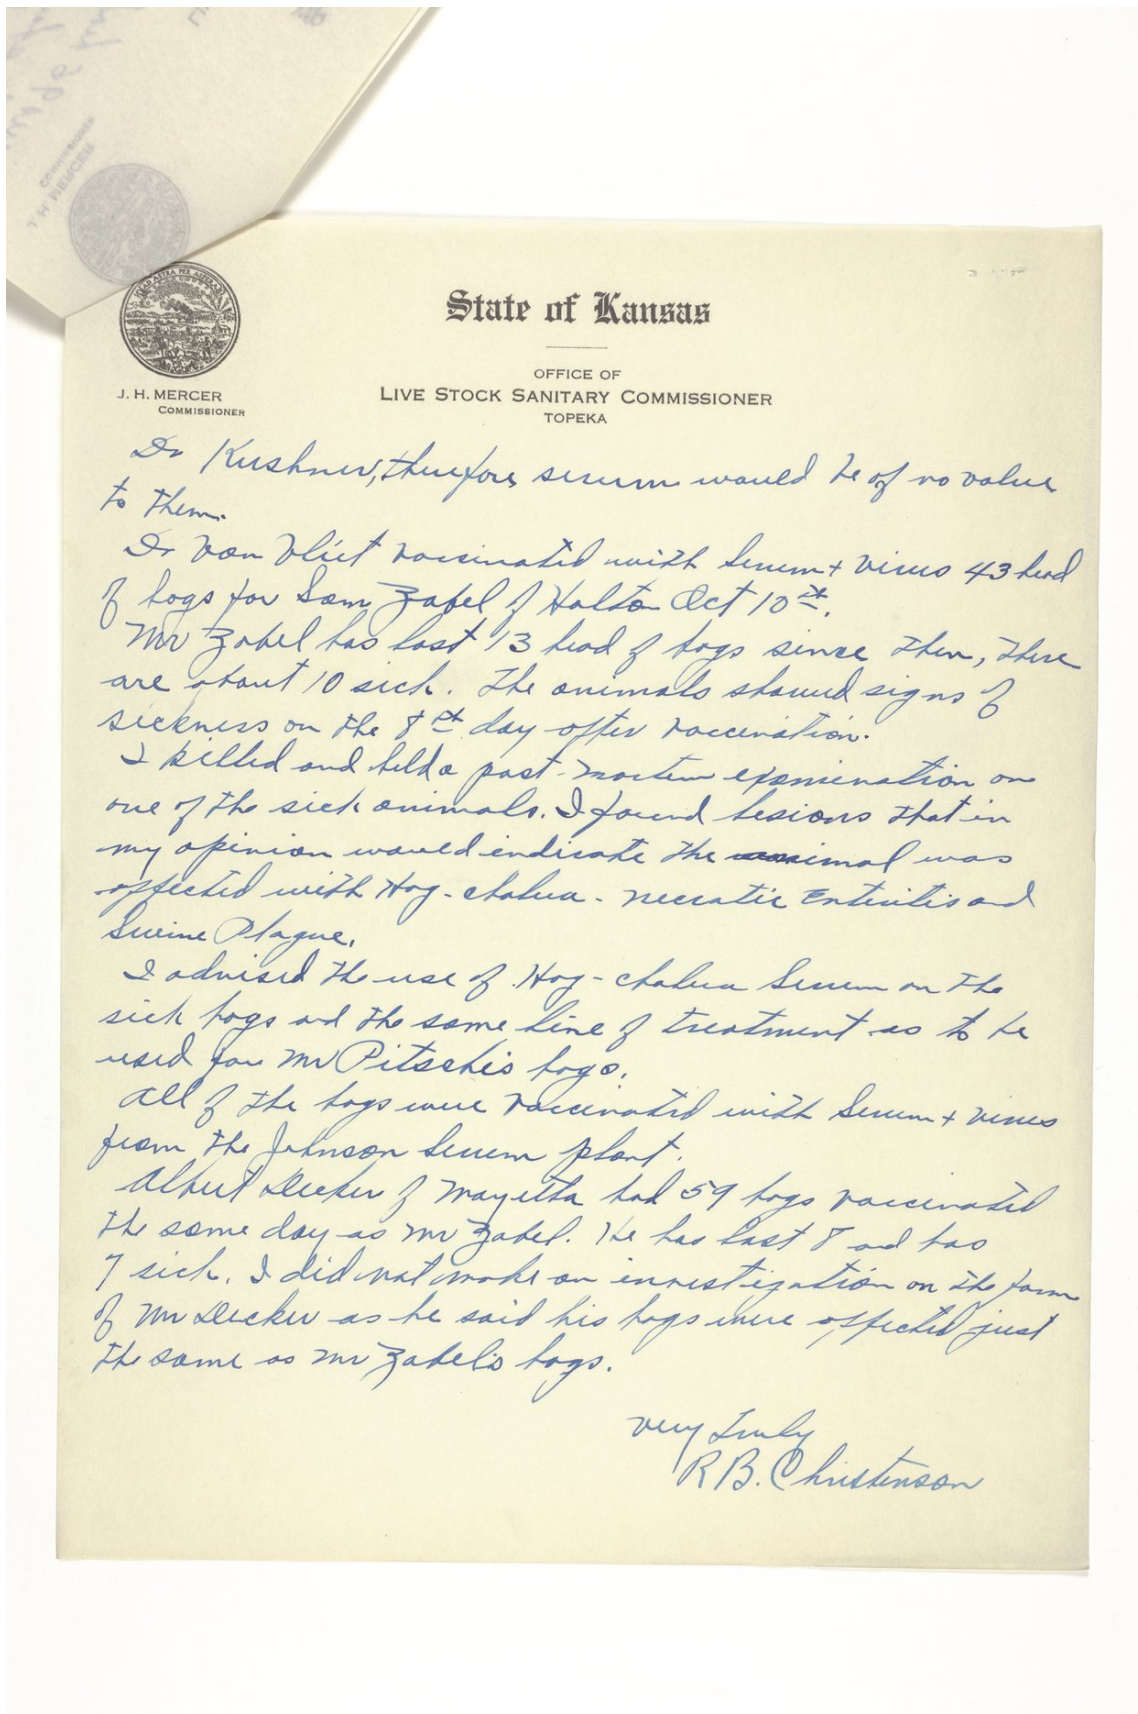 State of Kansas
OFFICE OF
LIVE STOCK SANITARY COMMISSIONER
TOPEKA
J. H. MERCER
COMMISSIONER
Dr Kushner, therefore serum would be of no value
to them.
Dr Van Vliet vaccinated with Serum + virus 43 head
of hogs for Sam Zabel of Holton Oct 10th.
Mr Zabel has lost 13 head of hogs since then, there
are about 10 sick. The animals showed signs of
sickness on the 8th day after vaccination.
I killed and held a post-mortem examination on
one of the sick animals. I found lesions that in
my opinion would indicate the animal was
affected with Hog-cholera - necrotic Enteritis and
Swine Plague.
I advised the use of Hog-cholera Serum on the
sick hogs and the same line of treatment as to be
used for Mr Pitschis hogs.
All of the hogs were vaccinated with Serum + virus
from the Johnson Serum plant.
Albert Decker of Mayetta had 59 hogs vaccinated
the same day as Mr Zabel. He has lost 8 and has
7 sick. I did not make an investigation on the farm
of Mr Decker as he said his hogs were affected just
the same as Mr Zabel's hogs.
Very Truly
R B. Christenson